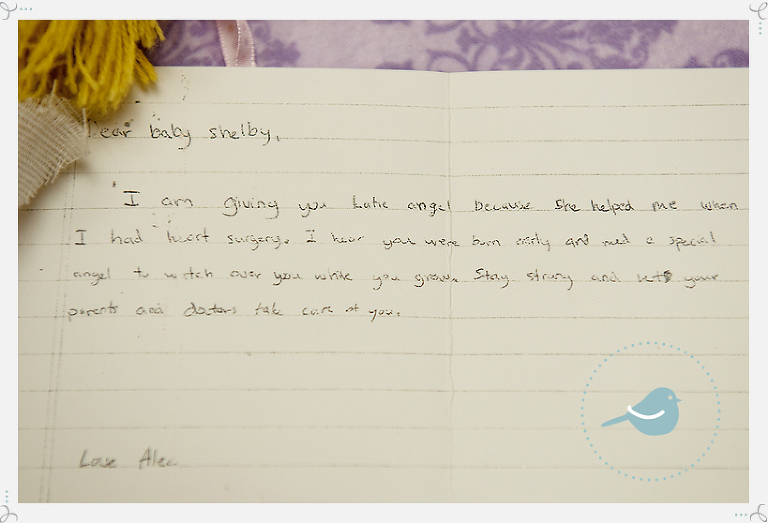 Dear baby shelby,
I am giving you Katie angel because she helped me when
I had heart surgery. I hear you were born early and need a special
angel to watch over you while you grow. Stay strong and let your
parents and doctors take care of you.
Love Alec